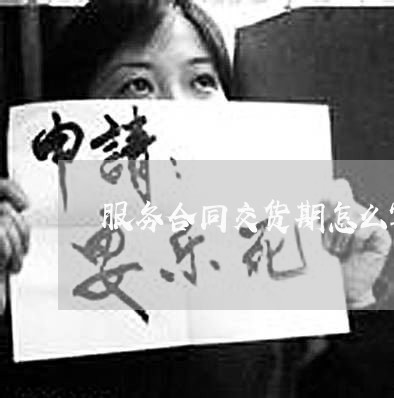 申請：
服务合同交货期怎么
乐死